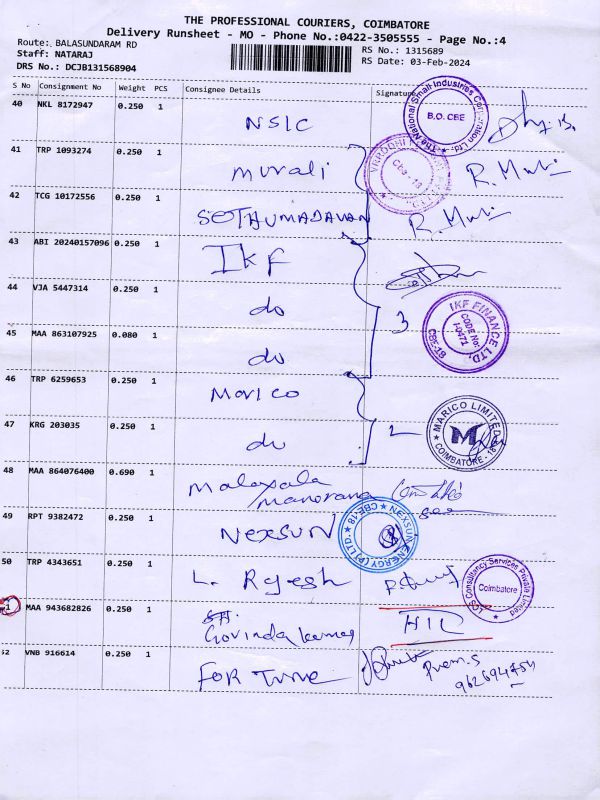 THE PROFESSIONAL COURIERS, COIMBATORE
Delivery Runsheet - MO - Phone No.:0422-3505555 - Page No.:4
Route: BALASUNDARAM RD
RS No.: 1315689
Staff: NATARAJ
RS Date: 03-Feb-2024
DRS No.: DCJB131568904
S No Consignment No Weight PCS Consignee Details Signature
40 NKL 8172947 0.250 1 NSIC
The National Small Industries Corporation Ltd. B.O. CBE
41 TRP 1093274 0.250 1 Murali R. Muli
Cbe - 18
42 TCG 10172556 0.250 1 R. Muli
43 ABI 20240157096 0.250 1 IKF
44 VJA 5447314 0.250 1 do
3
IKF FINANCE LTD. CODE No: CBE-18
45 MAA 863107925 0.080 1 do
46 TRP 6259653 0.250 1 Marico
47 KRG 203035 0.250 1 do
2
MARICO LIMITED M COIMBATORE - 18
48 MAA 864076400 0.690 1 Malayala Manorama
49 RPT 9382472 0.250 1 NEXSUN
NEXSUN ENERGY (P) LTD. CBE-18
50 TRP 4343651 0.250 1 L. Rajesh
Consultancy Services Private Limited Coimbatore
51 MAA 943682826 0.250 1 Govinda kumar
52 VNB 916614 0.250 1 FORTUNE
Prem.S